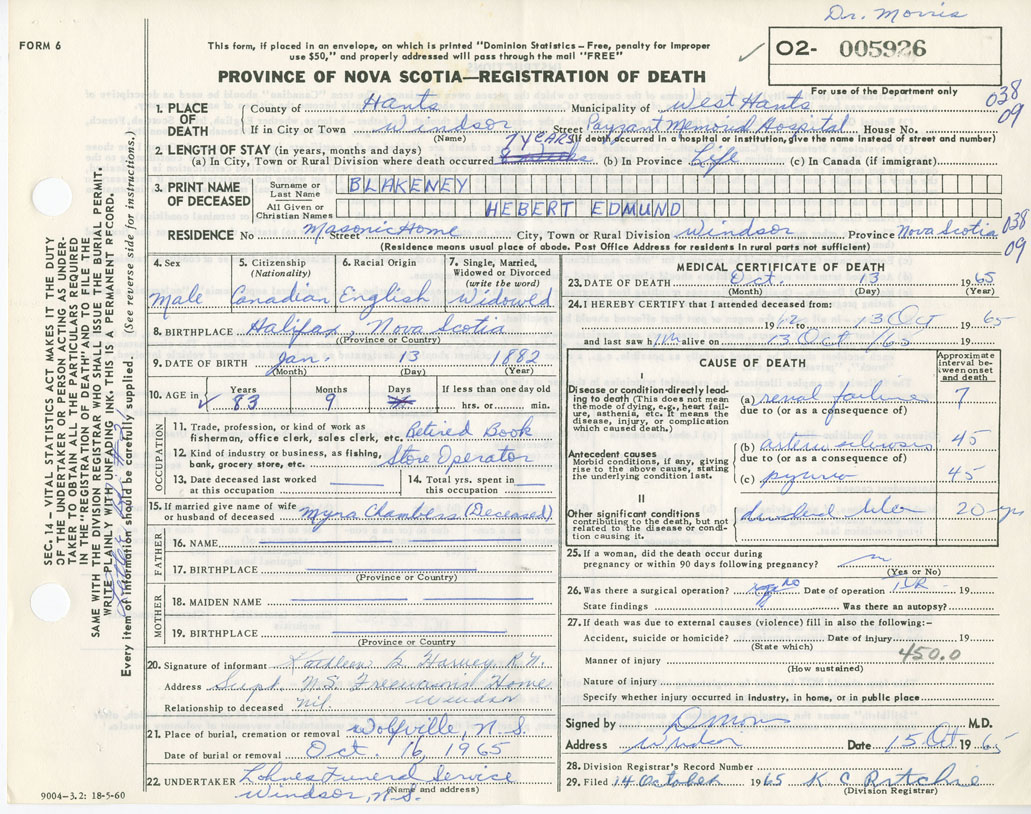 Dr. Morris
FORM 6
This form, if placed in an envelope, on which is printed "Dominion Statistics – Free, penalty for improper
use $50," and properly addressed will pass through the mail "FREE"
02- 005926
PROVINCE OF NOVA SCOTIA—REGISTRATION OF DEATH
For use of the Department only
038
09
1. PLACE OF DEATH
County of Hants Municipality of West Hants
If in City or Town Windsor Street Payzant Memorial Hospital House No.
(Name) (If death occurred in a hospital or institution, give the name instead of street and number)
2. LENGTH OF STAY (in years, months and days)
7 years
(a) In City, Town or Rural Division where death occurred (b) In Province Life (c) In Canada (if immigrant)
3. PRINT NAME OF DECEASED
Surname or Last Name BLAKENEY
All Given or Christian Names HEBERT EDMUND
RESIDENCE No Masonic Home Street City, Town or Rural Division Windsor Province Nova Scotia
038
09
(Residence means usual place of abode. Post Office Address for residents in rural parts not sufficient)
4. Sex
Male
5. Citizenship (Nationality)
Canadian
6. Racial Origin
English
7. Single, Married, Widowed or Divorced (write the word)
Widowed
8. BIRTHPLACE Halifax, Nova Scotia
(Province or Country)
9. DATE OF BIRTH Jan. 13 1882
(Month) (Day) (Year)
10. AGE in Years Months Days If less than one day old
83 9 hrs. or min.
OCCUPATION
11. Trade, profession, or kind of work as
fisherman, office clerk, sales clerk, etc. Retired Book
12. Kind of industry or business, as fishing,
bank, grocery store, etc. Store Operator
13. Date deceased last worked
at this occupation
14. Total yrs. spent in
this occupation
15. If married give name of wife
or husband of deceased Myra Chambers (Deceased)
FATHER
16. NAME
17. BIRTHPLACE
(Province or Country)
MOTHER
18. MAIDEN NAME
19. BIRTHPLACE
(Province or Country)
20. Signature of informant Kathleen B Harvey R.N.
Address Supt. N.S. Freemasons Home
Relationship to deceased nil. Windsor
21. Place of burial, cremation or removal Wolfville, N.S.
Date of burial or removal Oct 16, 1965
22. UNDERTAKER Lohnes Funeral Service
(Name and address)
Windsor, N.S.
9004–3.2: 18-5-60
MEDICAL CERTIFICATE OF DEATH
23. DATE OF DEATH Oct. 13 1965
(Month) (Day) (Year)
24. I HEREBY CERTIFY that I attended deceased from:
1962 to 13 Oct 1965
and last saw him alive on 13 Oct /65 19
CAUSE OF DEATH
Approximate interval between onset and death
I
Disease or condition directly leading to death (This does not mean
the mode of dying, e.g., heart failure, asthenia, etc. It means the
disease, injury, or complication
which caused death.)
(a) renal failure 7
due to (or as a consequence of)
Antecedent causes
Morbid conditions, if any, giving
rise to the above cause, stating
the underlying condition last.
(b) 45
due to (or as a consequence of)
(c) 45
II
Other significant conditions
contributing to the death, but not
related to the disease or condition causing it.
duodenal ulcer 20 yrs
25. If a woman, did the death occur during
pregnancy or within 90 days following pregnancy?
(Yes or No)
26. Was there a surgical operation? no Date of operation 19
State findings Was there an autopsy?
27. If death was due to external causes (violence) fill in also the following:–
Accident, suicide or homicide? Date of injury 19
(State which)
450.0
Manner of injury
(How sustained)
Nature of injury
Specify whether injury occurred in industry, in home, or in public place
Signed by M.D.
Address Windsor Date 15 Oct 1965
28. Division Registrar's Record Number
29. Filed 14 October 1965 K C Ritchie
(Division Registrar)
SEC. 14 – VITAL STATISTICS ACT MAKES IT THE DUTY
OF THE UNDERTAKER OR PERSON ACTING AS UNDER-
TAKER TO OBTAIN ALL THE PARTICULARS REQUIRED
IN THE "REGISTRATION OF DEATH" AND TO FILE THE
SAME WITH THE DIVISION REGISTRAR WHO SHALL ISSUE THE BURIAL PERMIT.
WRITE PLAINLY WITH UNFADING INK. THIS IS A PERMANENT RECORD.
Every item of information should be carefully supplied. (See reverse side for instructions.)